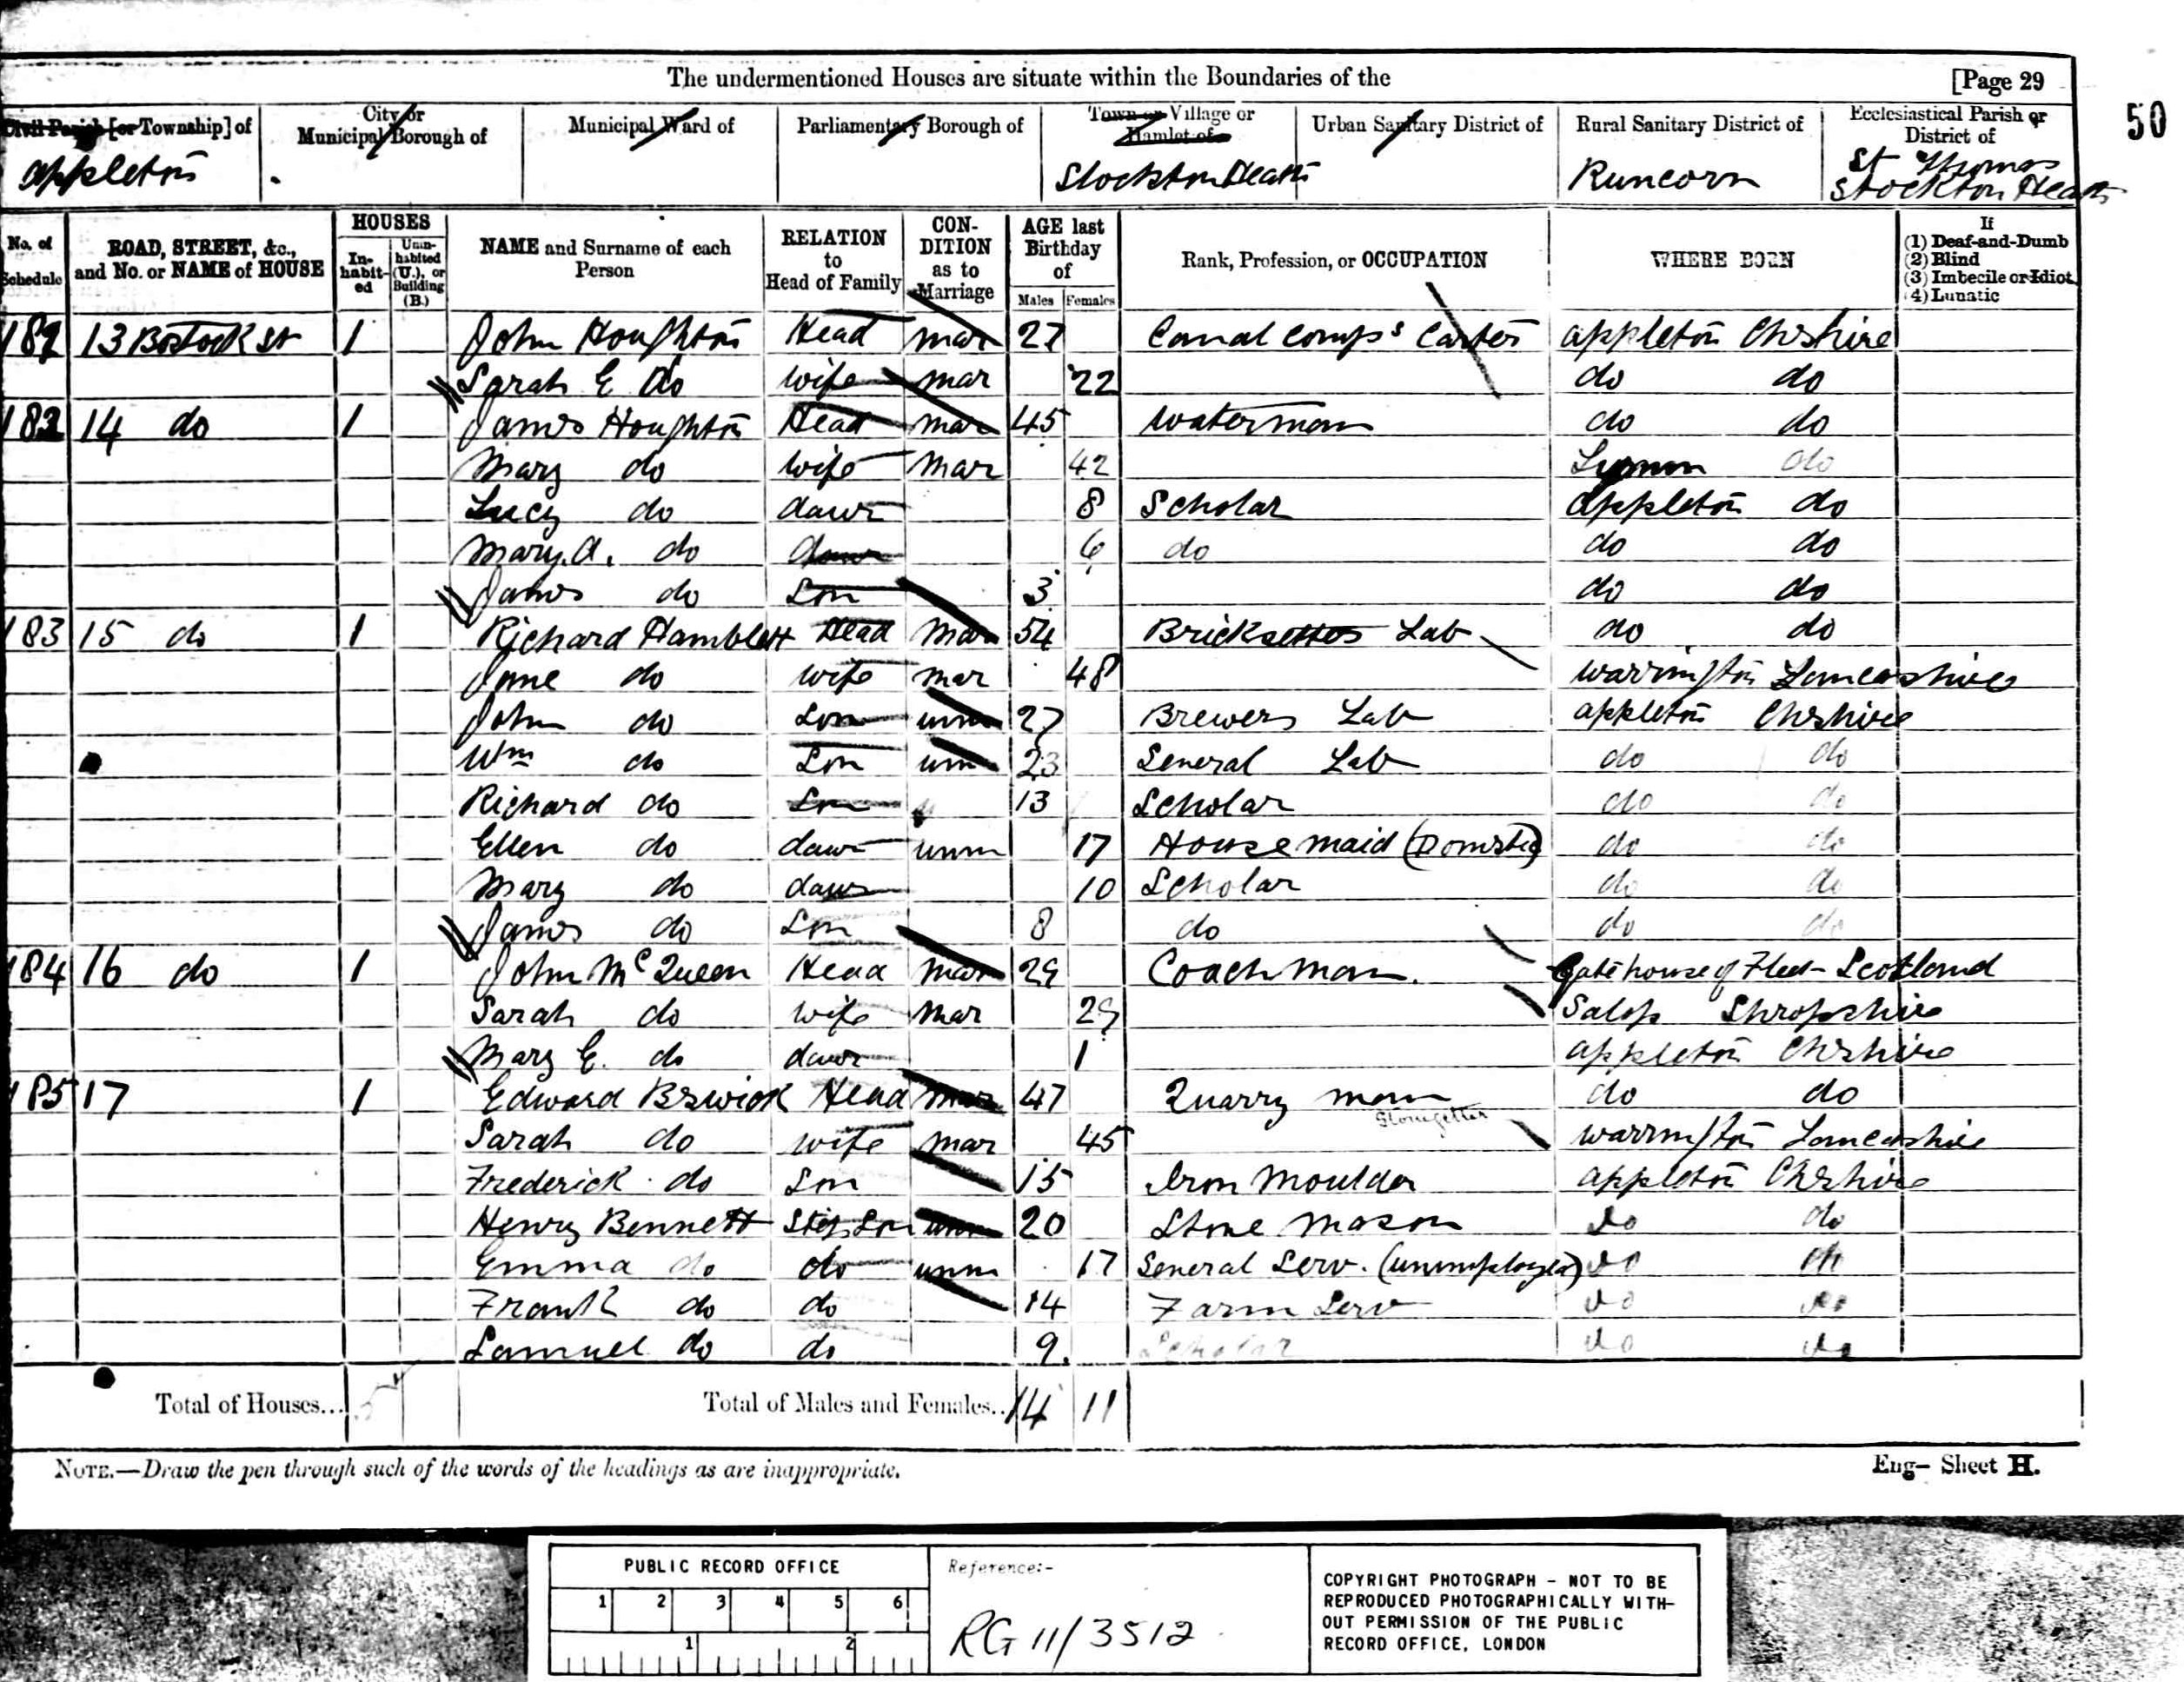 The undermentioned Houses are situate within the Boundaries of the [Page 29
50
Civil Parish [or Township] of City or Municipal Borough of Municipal Ward of Parliamentary Borough of Town or Village or Hamlet of Urban Sanitary District of Rural Sanitary District of Ecclesiastical Parish or District of
Appleton Stockton Heath Runcorn St Thomas Stockton Heath
No. of Schedule ROAD, STREET, &c., and No. or NAME of HOUSE HOUSES Inhabited Uninhabited (U.), or Building (B.) NAME and Surname of each Person RELATION to Head of Family CONDITION as to Marriage AGE last Birthday of Males Females Rank, Profession, or OCCUPATION WHERE BORN If (1) Deaf-and-Dumb (2) Blind (3) Imbecile or Idiot (4) Lunatic
181 13 Bostock St 1 John Houghton Head mar 27 Canal Comps Carter Appleton Cheshire
Sarah E do wife mar 22 do do
182 14 do 1 James Houghton Head mar 45 Waterman do do
Mary do wife mar 42 Lymm do
Lucy do daur 8 Scholar Appleton do
Mary. A. do daur 6 do do do
James do Son 3 do do
183 15 do 1 Richard Hamblett Head Mar 54 Bricksetters Lab do do
Jane do wife mar 48 Warrington Lancashire
John do Son unm 27 Brewers Lab Appleton Cheshire
Wm do Son unm 23 General Lab do do
Richard do Son 13 Scholar do do
Ellen do daur unm 17 House maid (Domestic) do do
Mary do daur 10 Scholar do do
James do Son 8 do do do
184 16 do 1 John McQueen Head mar 29 Coachman. Gatehouse of Fleet Scotland
Sarah do wife mar 29 Salop Shropshire
Mary E. do daur 1 Appleton Cheshire
185 17 1 Edward Beswick Head mar 47 Quarry man do do
Stonegetter
Sarah do wife mar 45 Warrington Lancashire
Frederick do Son 15 Iron Moulder Appleton Cheshire
Henry Bennett Step Son unm 20 Stone Mason do do
Emma do do unm 17 General Serv. (unemployed) do do
Frank do do 14 Farm Serv do do
Samuel do do 9 Scholar do do
Total of Houses... 5 Total of Males and Females.. 14 11
NOTE.—Draw the pen through such of the words of the headings as are inappropriate. Eng— Sheet H.
PUBLIC RECORD OFFICE
1 2 3 4 5 6
1 2
Reference:-
RG 11/3512
COPYRIGHT PHOTOGRAPH - NOT TO BE
REPRODUCED PHOTOGRAPHICALLY WITH-
OUT PERMISSION OF THE PUBLIC
RECORD OFFICE, LONDON